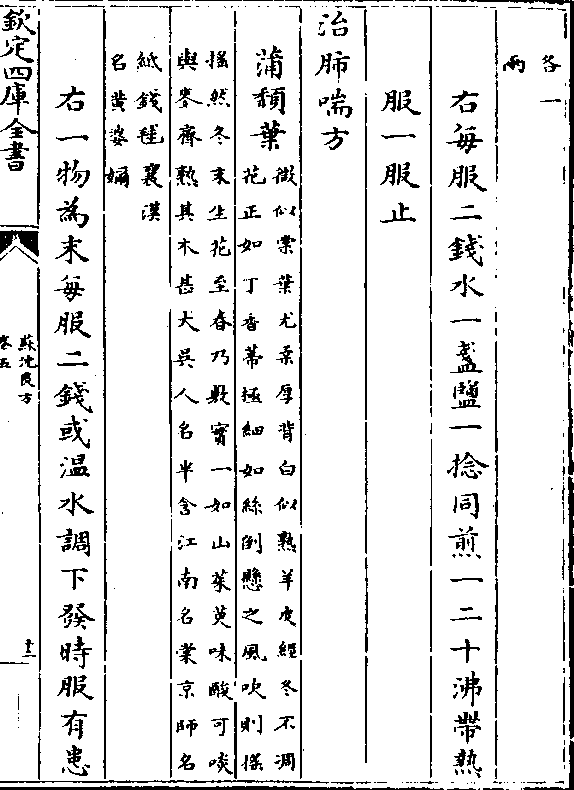 各一
兩
右每服二錢水一盞鹽一捻同煎一二十沸帶熱
服一服止
治肺喘方
蒲頽葉
微似棠葉尤柔厚背白似熟羊皮經冬不凋
花正如丁香蒂極細如絲倒懸之風吹則揺
揺然冬末坐花至春乃敷實一如山茱萸味酸可啖
與麥齊熟其木甚大吳人名半含江南名棠京師名
紙錢毬襄漢
名黄婆嬭
右一物為末每服二錢或温水調下發時服有患
欽定四庫全書
蘇沈良方
卷五
十三